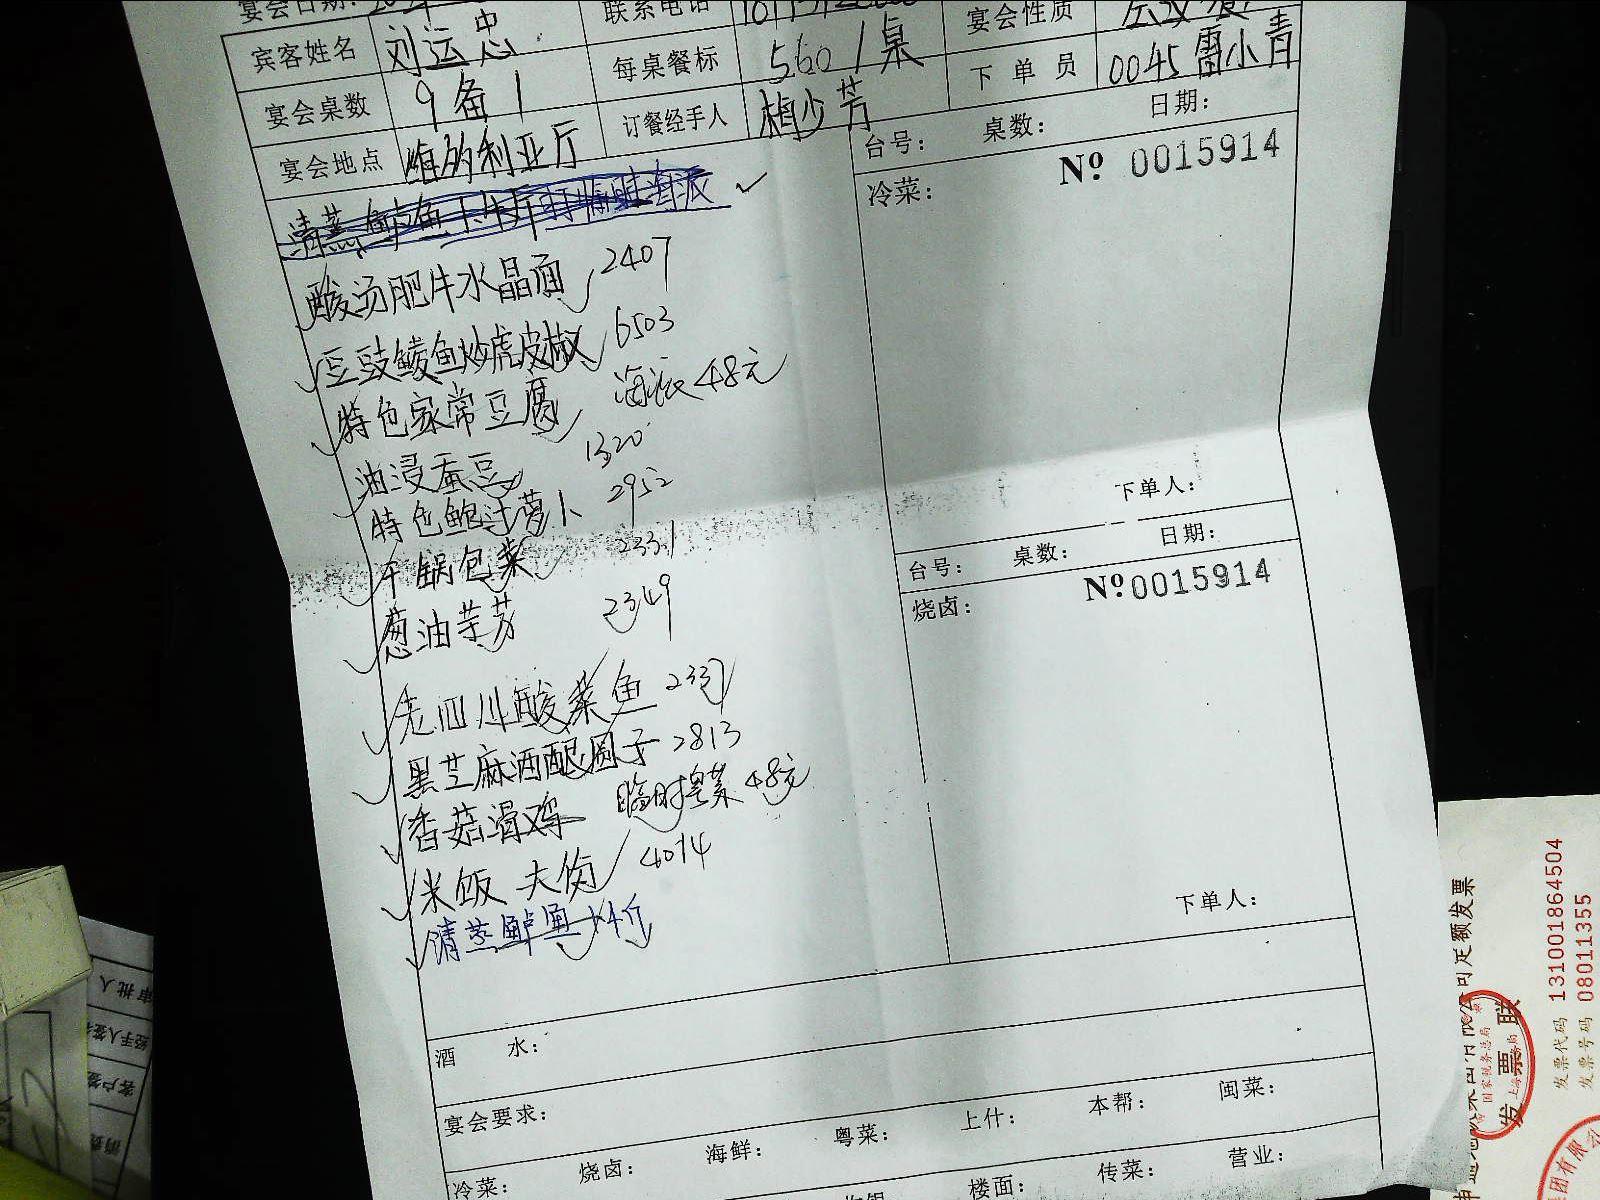 宴会日期:
联系电话
宴会性质
宾客姓名 刘运忠
每桌餐标 560/桌
下单员 0045 雷小青
宴会桌数 9备1
订餐经手人 梅少芳
宴会地点 维的利亚厅
台号: 桌数: 日期:
冷菜: Nº 0015914
清蒸鲈鱼
酸汤肥牛水晶面 2407
豆豉鲮鱼炒虎皮椒 6503
特色家常豆腐 海派48元
油浸蚕豆 1320
特色鲍汁萝卜 2952
干锅包菜 2331
葱油芋艿 2349
老四川酸菜鱼
黑芝麻酒酿圆子 2813
香菇滑鸡 临时粤菜48元
米饭 大份 4014
清蒸鲈鱼 1.4斤
下单人:
台号: 桌数: 日期:
烧卤: Nº 0015914
下单人:
酒 水:
宴会要求:
冷菜: 烧卤: 海鲜: 粤菜: 上什: 本帮: 闽菜:
楼面: 传菜: 营业:
审批人
经手人签
客户签
消费
足额发票
发票联
国家税务总局
发票代码 131001864504
发票号码 08011355
团有限公司